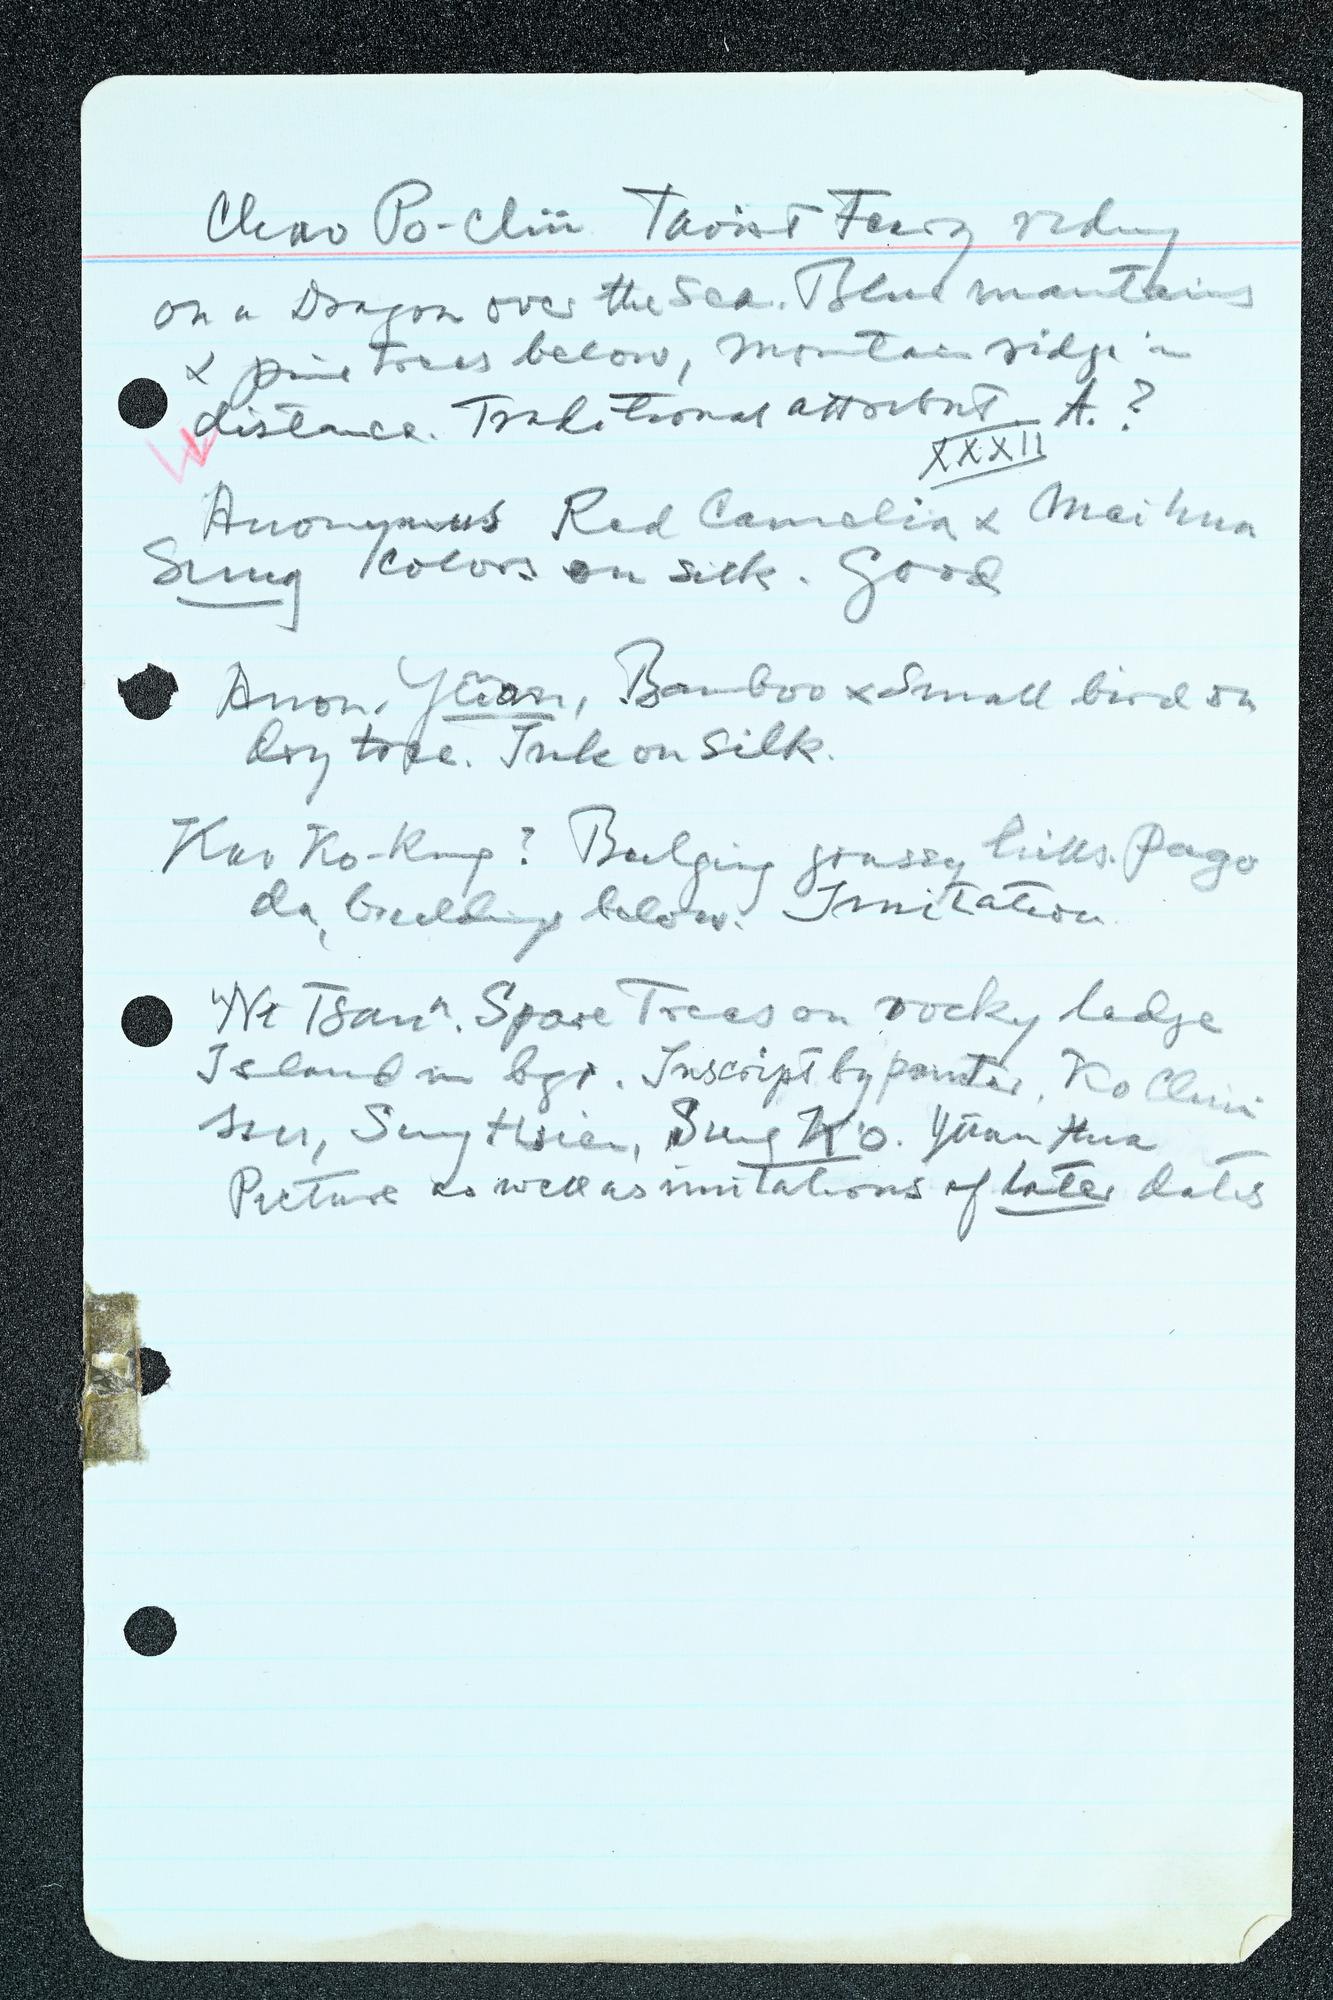 Chao Po-chü Taoist Fairy riding
on a Dragon over the Sea. Blue mountains
& pine trees below, mountain ridge in
distance. Traditional attribut. A. ?
XXXII
Anonymous Red Camelia & Mei hua
Sung colors on silk. Good
Anon. Yüan, Bamboo & Small bird on
dry tree. Ink on Silk.
Kao Ko-kung ? Bulging grassy hills. Pago
da, buildings below. Imitation.
"Ni Tsan". Spare Trees on rocky ledge
Island in bgr. Inscript by painter, Ko Chiu
ssu, Sung Hsien, Sung K'o. Yüan Hua
Picture as well as imitations of later dates